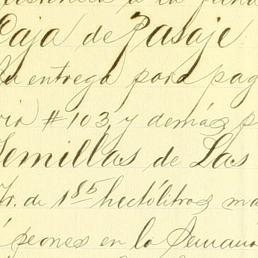 Caja de Pasaje
entrega para pag
#103, y demás p
Semillas de Las
Fr. de 1 hectólitros ma
peones en la Semana